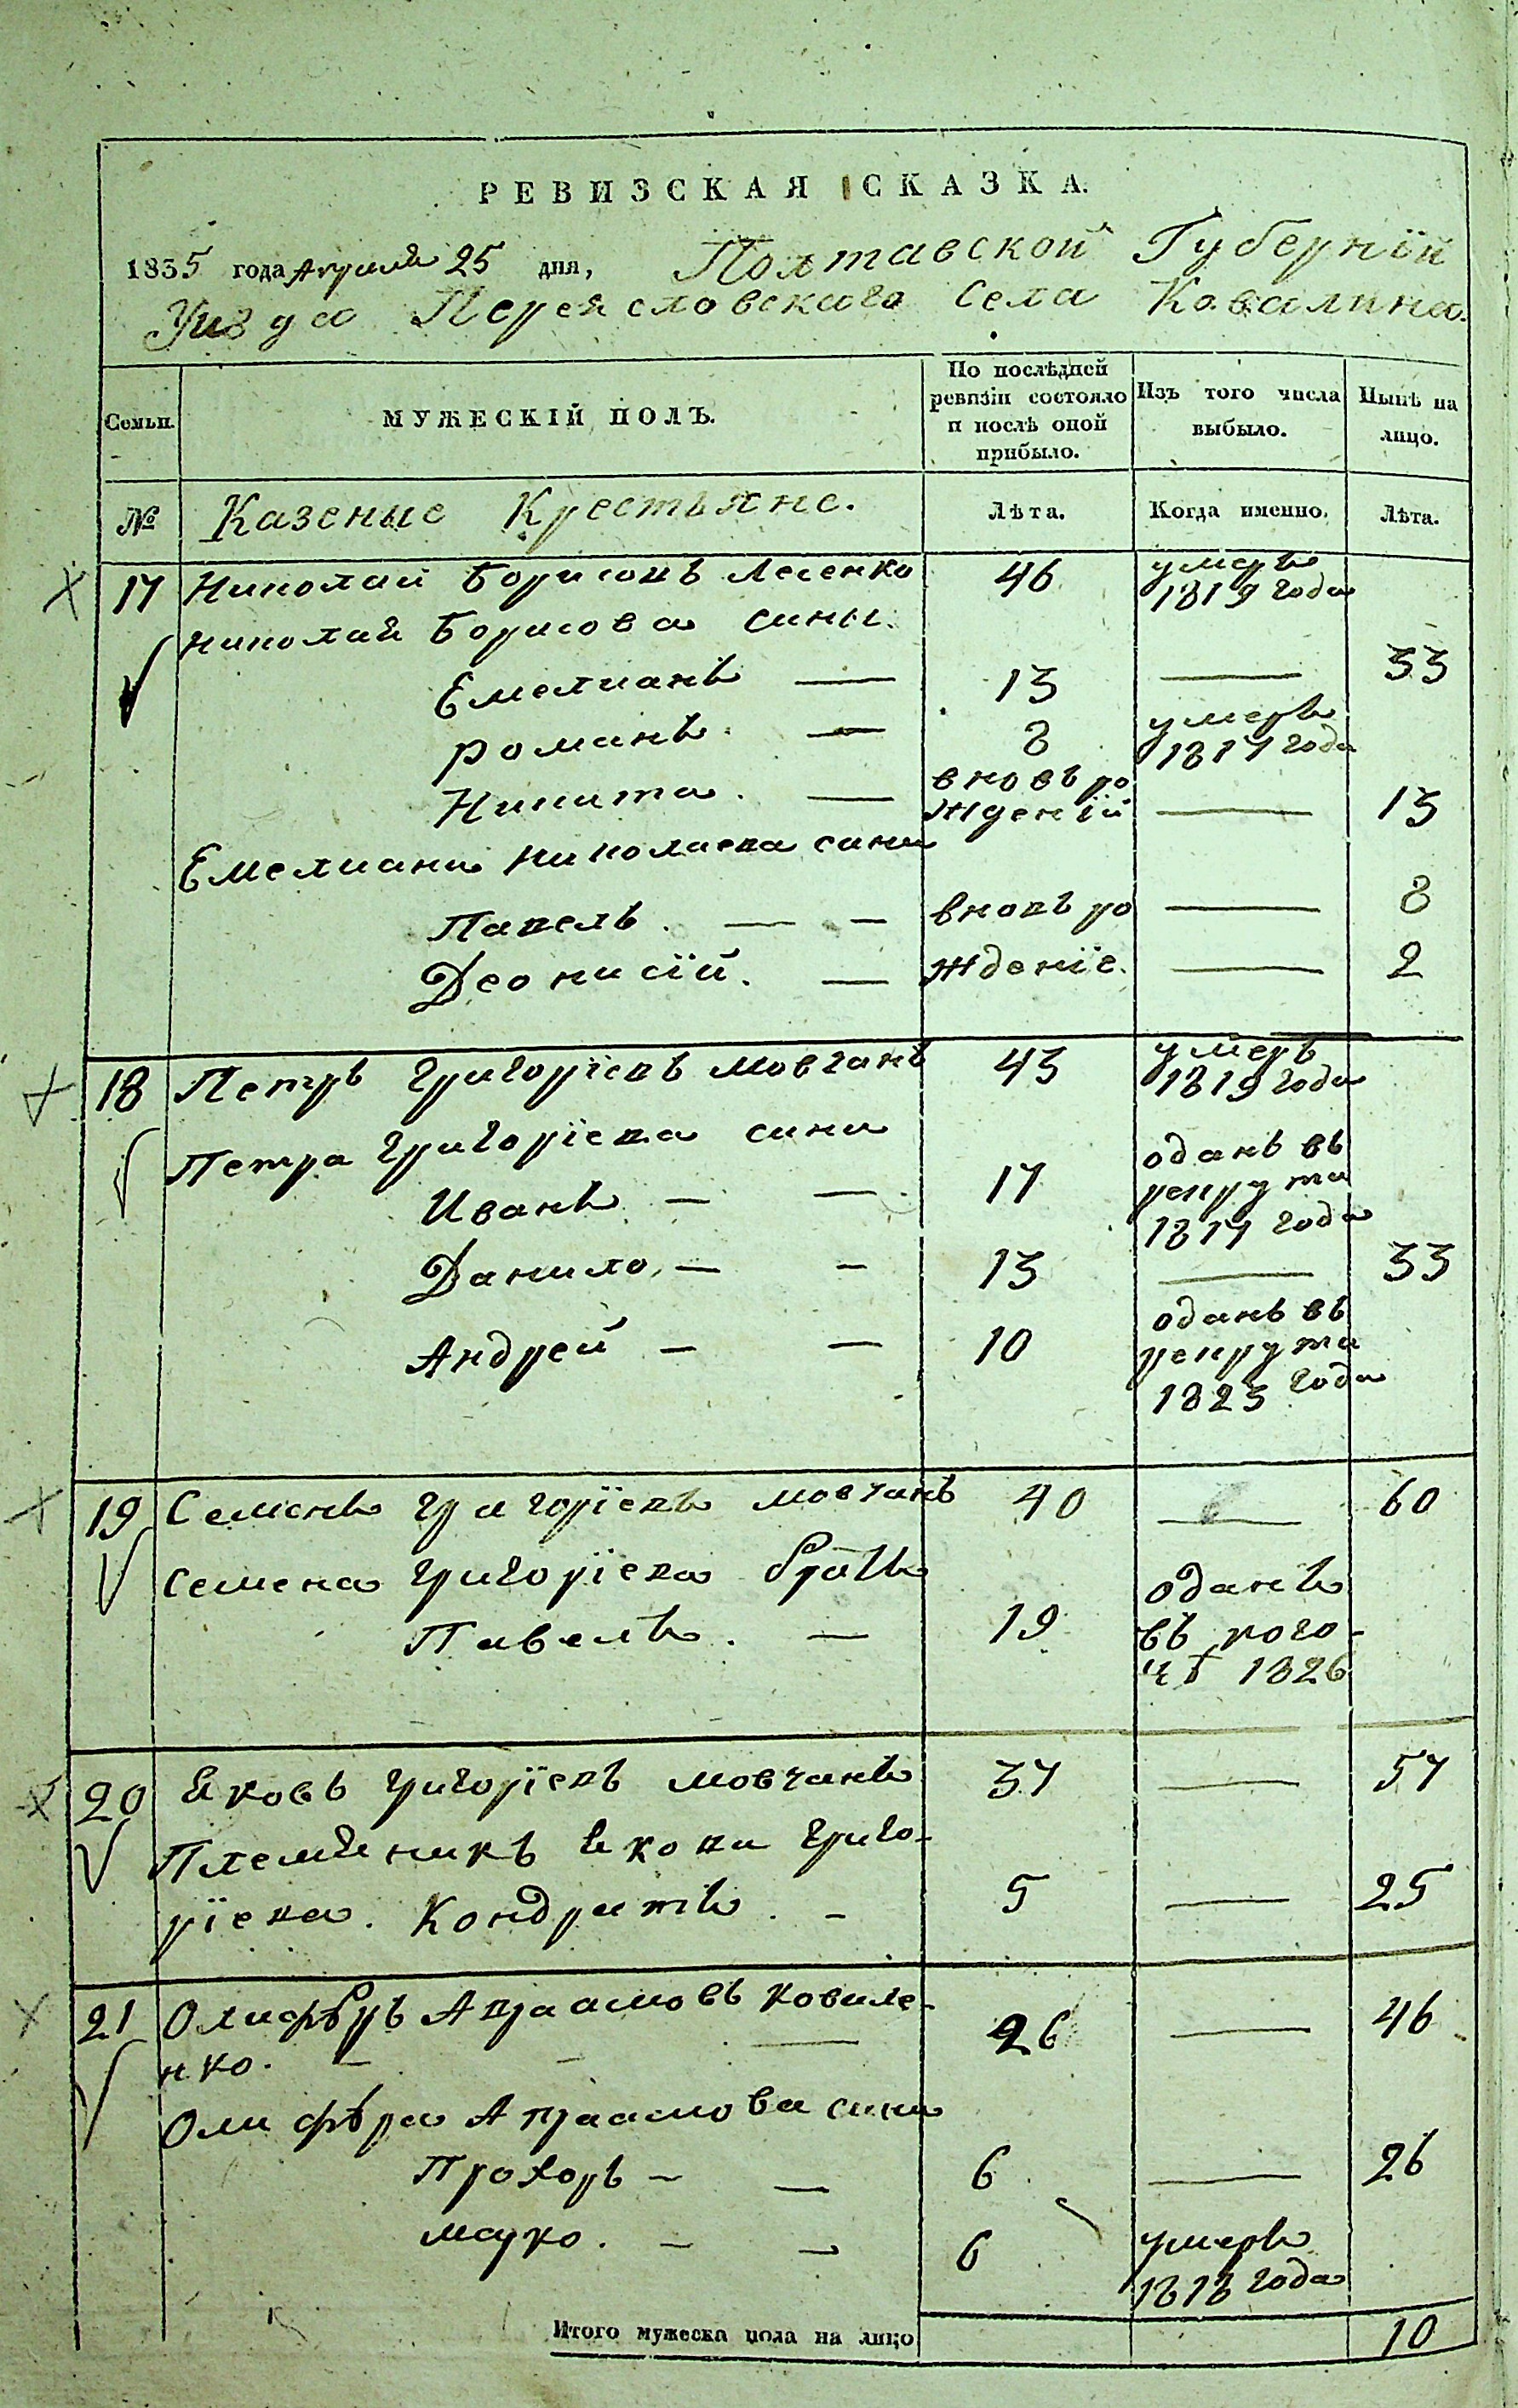 РЕВИЗСКАЯ СКАЗКА.
1835 года Априля 25 дня, Полтавской Губернїи
Уизда Переяславскаго Села Ковалина.
Семьи.
МУЖЕСКІЙ ПОЛЪ.
По послѣдней ревизіи состояло и послѣ оной прибыло.
Изъ того числа выбыло.
Нынѣ на лицо.
№ Казеные Крестьяне. Лѣта. Когда именно. Лѣта.
17 Николай Борисовъ Лесенко 46 умеръ 1819 года
Николая Борисова сины.
Емелианъ — 13 — 33
романъ. — 8 умеръ 1817 года
Никита. — вновь рожденїй — 13
Емелиана Николаева сини
Павелъ. — — вновь ро — 8
Деонисїй. — жденїе. — 2
18 Петръ Григорїевъ Мовчанъ 43 умеръ 1819 года
Петра Григорїева сини
Иванъ — — 17 оданъ въ рекрути 1817 года
Данило, — — 13 — 33
Андрей — — 10 оданъ въ рекрути 1823 года
19 Семенъ Григорїевъ мовчанъ 40 — 60
Семена Григорїева братъ
Павелъ. — 19 оданъ въ 1826
20 Яковъ Григорїевъ мовчанъ 37 — 57
Племяникъ Якова Григо-
рїева. Кондратъ. — 5 — 25
21 Олифѣръ Авраамовъ Ковале- 26 — 46
нко. — — —
Олифѣра Авраамова сини
Прохоръ — — 6 — 26
марко. — — 6 умеръ 1818 года
Итого мужеска пола на лицо 10